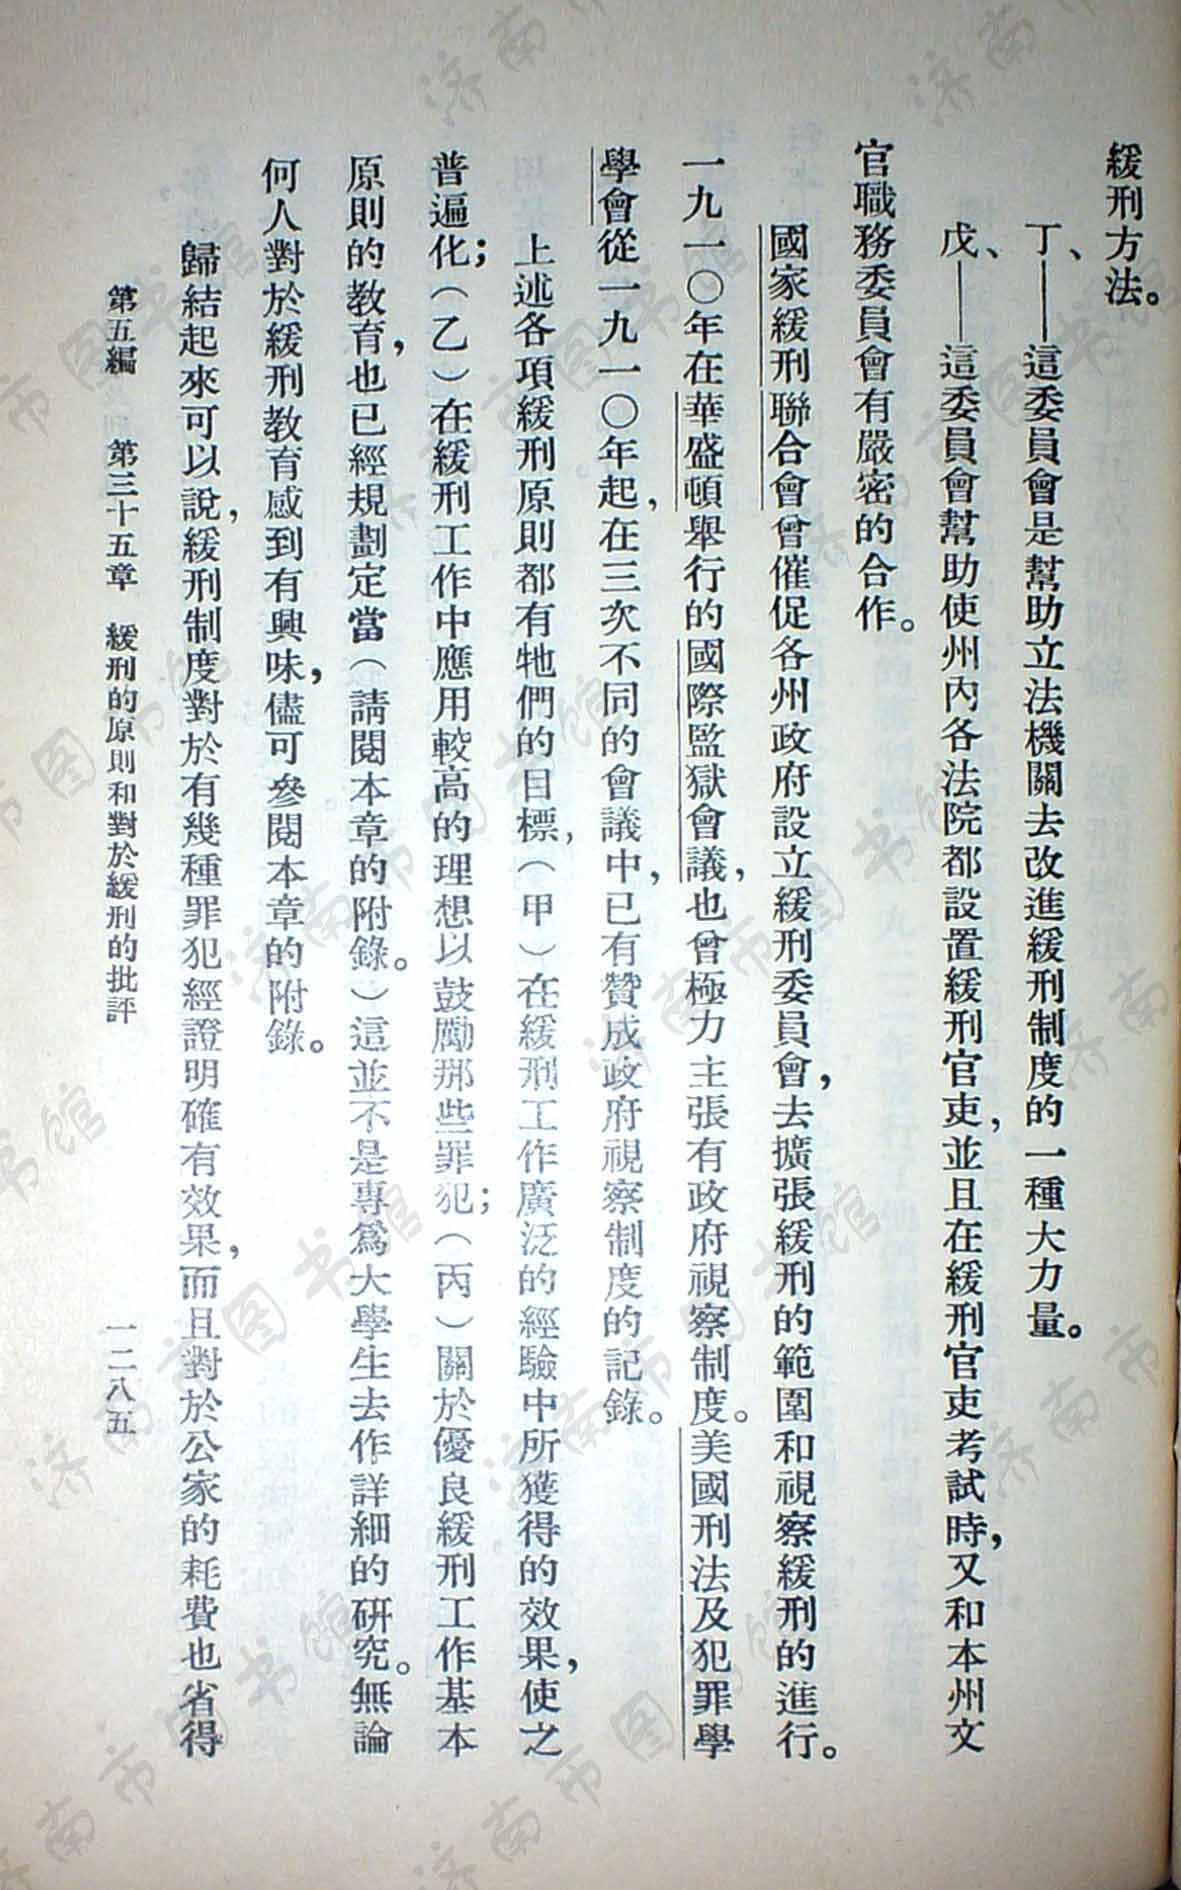 緩刑方法。
丁、——這委員會是幫助立法機關去改進緩刑制度的一種大力量。
戊、——這委員會幫助使州內各法院都設置緩刑官吏，並且在緩刑官吏考試時，又和本州文
官職務委員會有嚴密的合作。
國家緩刑聯合會曾催促各州政府設立緩刑委員會，去擴張緩刑的範圍和視察緩刑的進行。
一九一〇年在華盛頓舉行的國際監獄會議，也曾極力主張有政府視察制度。美國刑法及犯罪學
學會從一九一〇年起，在三次不同的會議中，已有贊成政府視察制度的記錄。
上述各項緩刑原則都有牠們的目標，（甲）在緩刑工作廣泛的經驗中所獲得的效果，使之
普遍化；（乙）在緩刑工作中應用較高的理想以鼓勵那些罪犯；（丙）關於優良緩刑工作基本
原則的教育，也已經規劃定當（請閱本章的附錄。）這並不是專爲大學生去作詳細的研究。無論
何人對於緩刑教育感到有興味，儘可參閱本章的附錄。
歸結起來可以說，緩刑制度對於有幾種罪犯經證明確有效果，而且對於公家的耗費也省得
第五編　第三十五章　緩刑的原則和對於緩刑的批評　一二八五
济南市图书馆